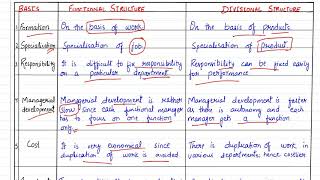 BASIS FUNCTIONAL STRUCTURE DIVISIONAL STRUCTURE
1. Formation On the basis of work On the basis of products
2. Specialisation Specialisation of job Specialisation of product
3. Responsibility It is difficult to fix responsibility on Responsibility can be fixed easily
a particular department for performance
Managerial Managerial development is Managerial development is faster
development slow since each functional manager as there is autonomy and each
has to focus on one function manager gets a function
only
5. Cost It is very economical since There is duplication of work in
duplication of work is avoided various departments; hence costlier